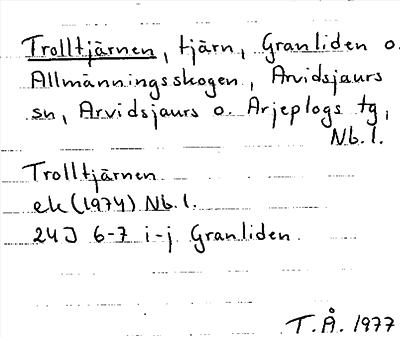 Trolltjärnen, tjärn, Granliden o.
Allmänningsskogen, Arvidsjaurs
sn, Arvidsjaurs o. Arjeplogs tg,
Nb. l.
Trolltjärnen
ek (1974) Nb. l.
24J 6-7 i-j Granliden.
T. Å. 1977